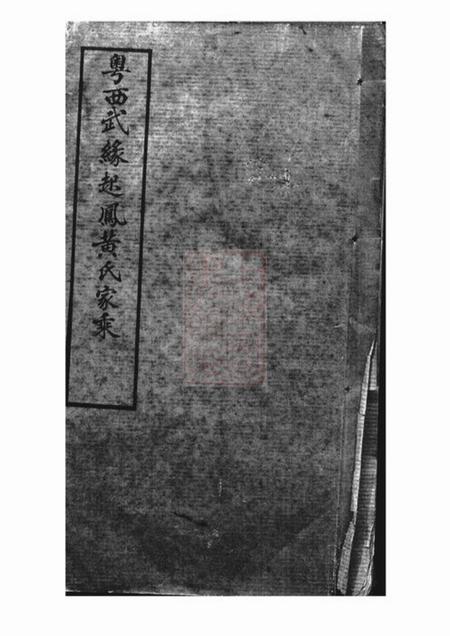 粤西武緣起鳳黃氏家乘